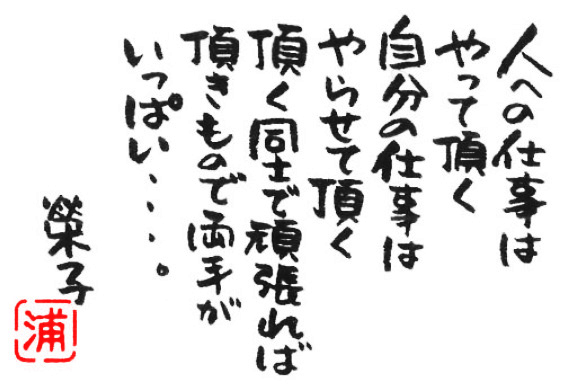 人への仕事は
やって頂く
自分の仕事は
やらせて頂く
頂く同士で頑張れば
頂きもので両手が
いっぱい・・・・。
榮子
浦